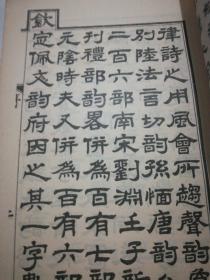 律詩之用風會所趨聲韵
別陸法言切韵孫愐唐韵
二百六部南宋劉淵壬子新
刊禮部韵畧併為百有七部
元陰時夫又併為百有六部
欽定佩文韵府因之其一字數